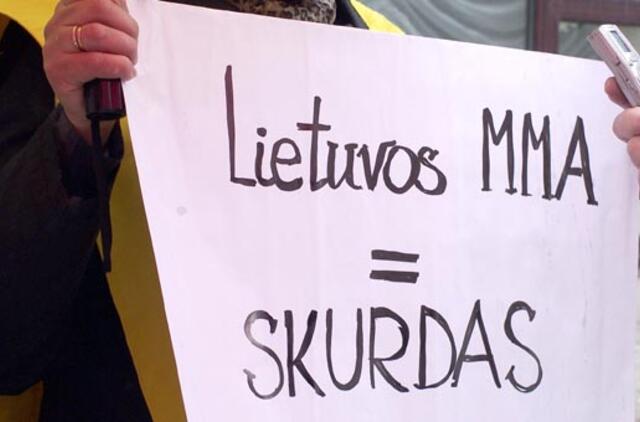 Lietuvos MMA
=
SKURDAS